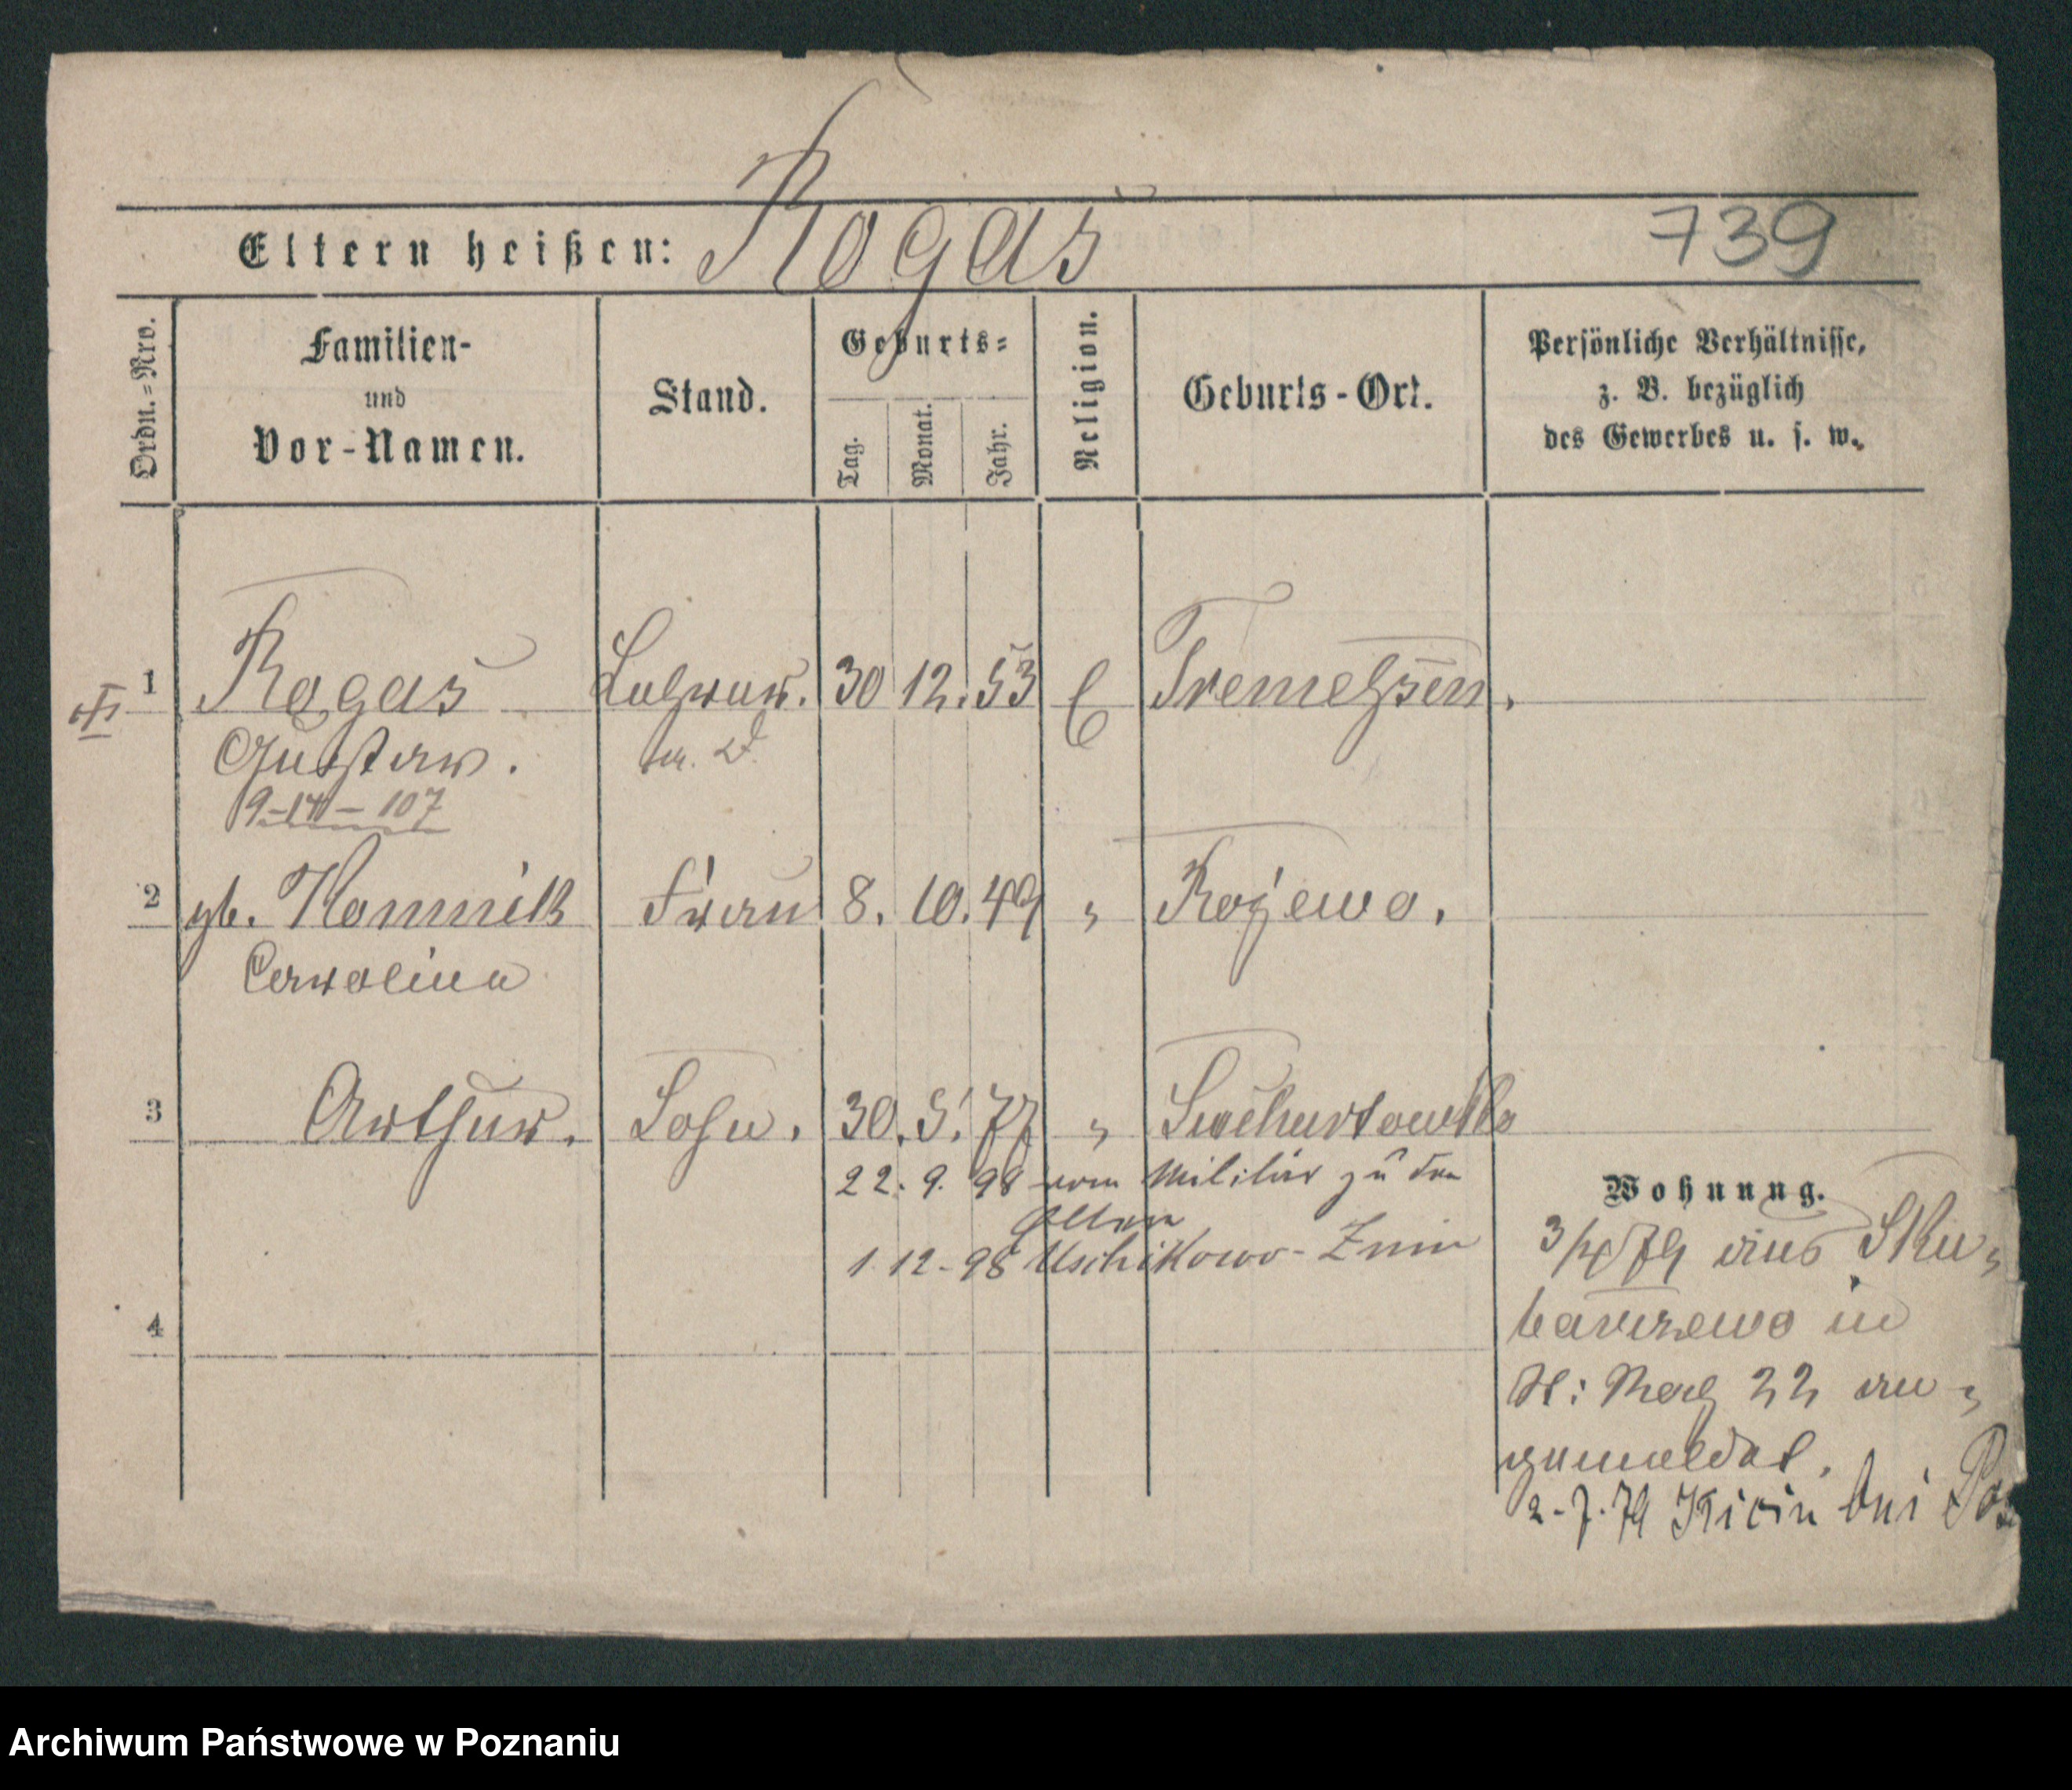 Eltern heißen: Rogas
739
Ordn.=Nro.
Familien-
und
Vor-Namen.
Stand.
Geburts=
Tag.
Monat.
Jahr.
Religion.
Geburts-Ort.
Persönliche Verhältnisse,
z. B. bezüglich
des Gewerbes u. s. w.
1 Rogas Lehrer. 30 12. 53 E Tremessen.
Gustav.
9-14-107
2 gb. Kominik Frau 8. 10. 49 " Rojewo.
Carolina
3 Arthur. Sohn. 30. 5. 77 "
22. 9. 98 vom Militär zu den
Eltern
1 12-98 Uschikowo-Znin
4
Wohnung.
3/4 79 aus Sku-
barczewo in
St. 22 an-
gemeldet.
2-7.79 Kicin bei Pos
Archiwum Państwowe w Poznaniu